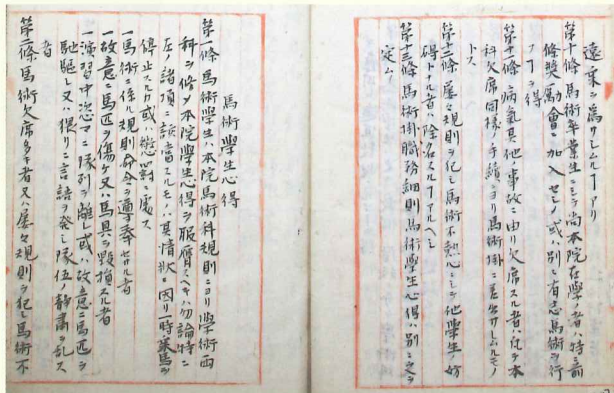 遠乗ヲ為サシムルアリ
第十條 馬術卒業生ニシテ尚本院在學ノ者ハ特ニ前
條奨勵會ニ加入セシメ或ハ別ニ有志馬術ヲ行
フヿヲ得
第十一條 病氣其他事故ニ由リ欠席スル者ハ凡テ本
科欠席同様ノ手續ニヨリ馬術掛ニ差出サシムルモノ
トス
第十二條 屡々規則ヲ犯シ馬術不熱心ニシテ他學生ノ妨
碍トナル者ハ除名スルヿアルヘシ
第十三條 馬術掛職務細則馬術學生心得ハ別ニ之ヲ
定ム
馬術學生心得
第一條 馬術學生ハ本院馬術科規則ニヨリ學術両
科ヲ修メ本院學生心得ヲ服膺スヘキハ勿論特ニ
左ノ諸項ニ該當スルモノハ其情狀ニ因リ時々乗馬ヲ
停止スルカ或ハ懲罰ニ處ス
一馬術ニ係ル規則命令ヲ遵奉セサル者
一故意ニ馬匹ヲ傷ケ又ハ馬具ヲ毀損スル者
一演習中恣マニ隊列ヲ離レ或ハ故意ニ馬匹ヲ
馳駆シ又ハ猥リニ言語ヲ発シ隊伍ノ静肅ヲ乱ス
者
第二條 馬術欠席多キ者又ハ屡々規則ヲ犯シ馬術不